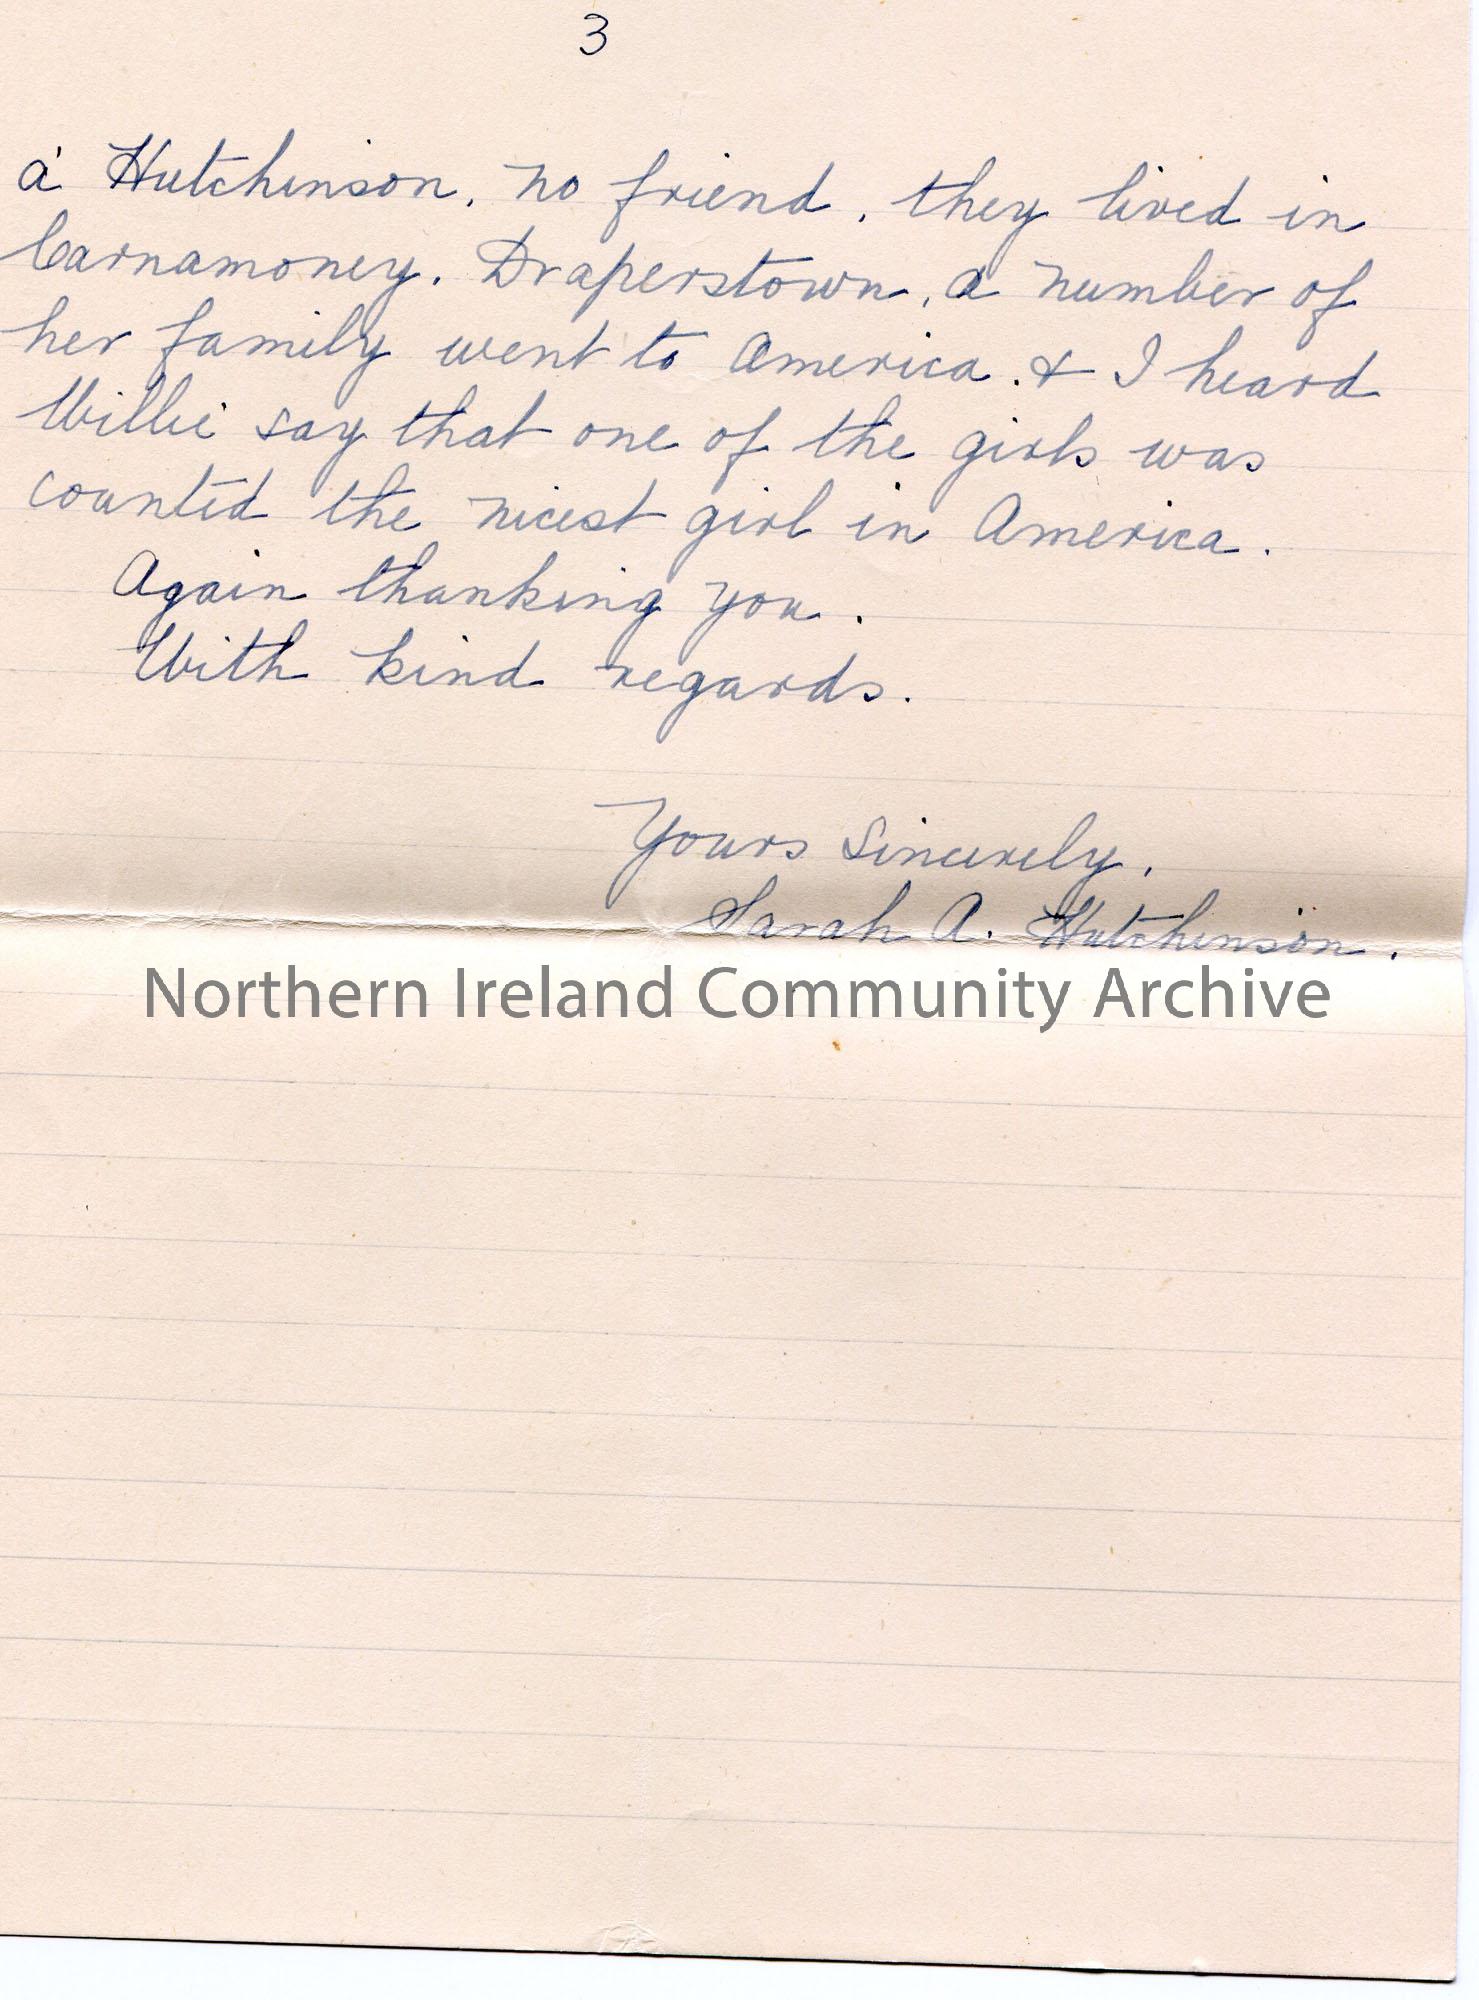 3
a Hutchinson. no friend, they lived in
Carnamoney. Draperstown, a number of
her family went to America. & I heard
Willie say that one of the girls was
counted the nicest girl in America.
Again thanking you.
With kind regards.
Yours Sincerely,
Sarah A. Hutchinson.
Northern Ireland Community Archive